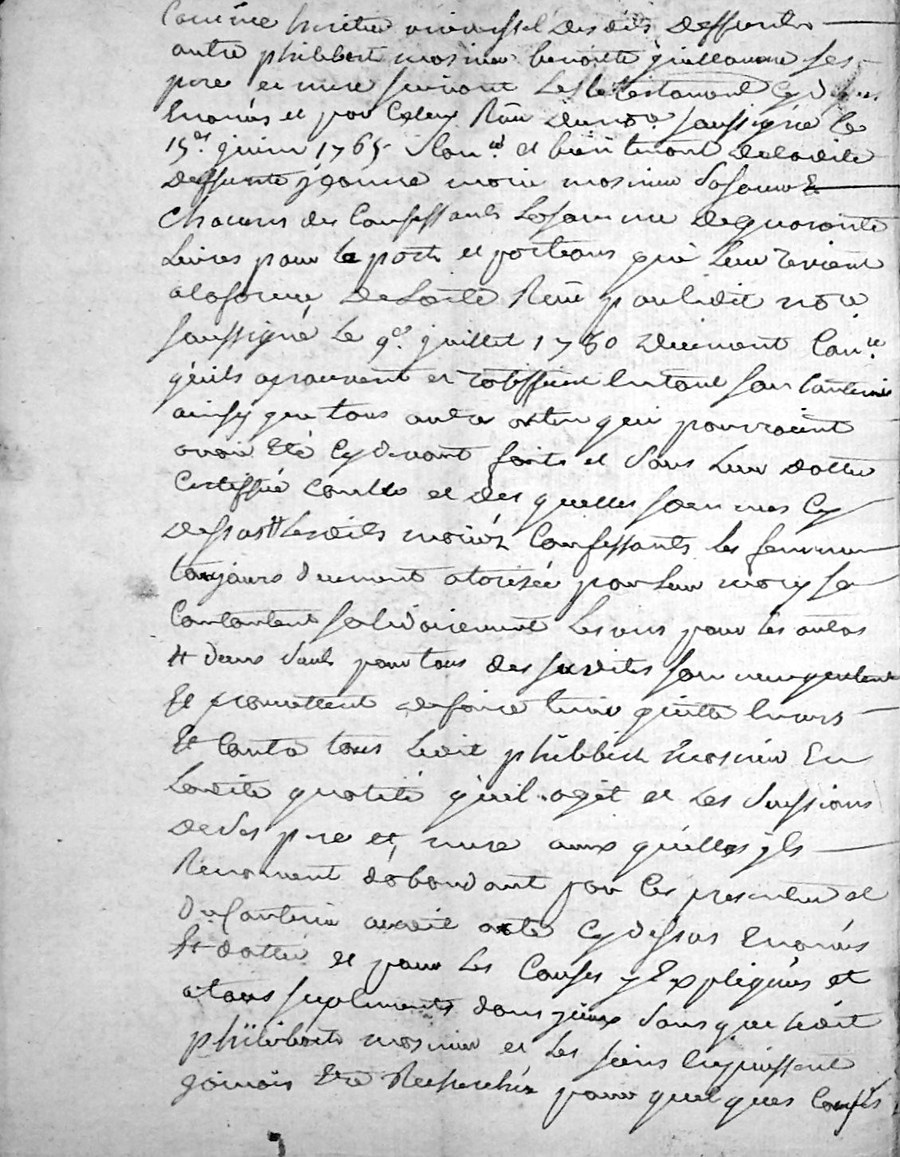 Comme heritier universsel des dits deffunts
autre philibert mosnier benoitte guillaume ses
pere et mere suivant les testament cy dessus
Enoncés et par Celuy Reçu du nore soussigné le
15e juin 1765 et bien tenant de ladite
deffunte jeanne mosnier
Chacuns des Confessants la somme de quarante
Livres pour la parts et portions qui leur revient
a la forme de lacte Recu par ledit nore
soussigné le 9e juillet 1780 duement Conte
qu'ils aprouvent et ratiffient en tout son contenu
ainsy que tous autre actes qui pourroient
avoir Eté Cy devant faits et sous leur datte
Certiffié Contlé et des quelles sommes Cy
dessus lesdits mariés Confessants les femmes
toujours duement autorisée par leur mary se
Contantent solidairement les uns pour les autres
et deux seuls pour tous des susdites sommes
Et promettent de faire tenir quitte Envers
Et Contre tous ledit philibert mosnier En
Ladite qualité qu'il agit et les Sucssions
de Ses pere et mere aux quelles jls
Renoncent d'abondant par les presentes et
Du Contenu audit acte Cy dessus Enoncés
Et datté et pour les Causes y Expliquées et
a tous suplements sans que ledit
philibert mosnier et les siens En puissent
jamais Etre Recherchés pour quelques Causes